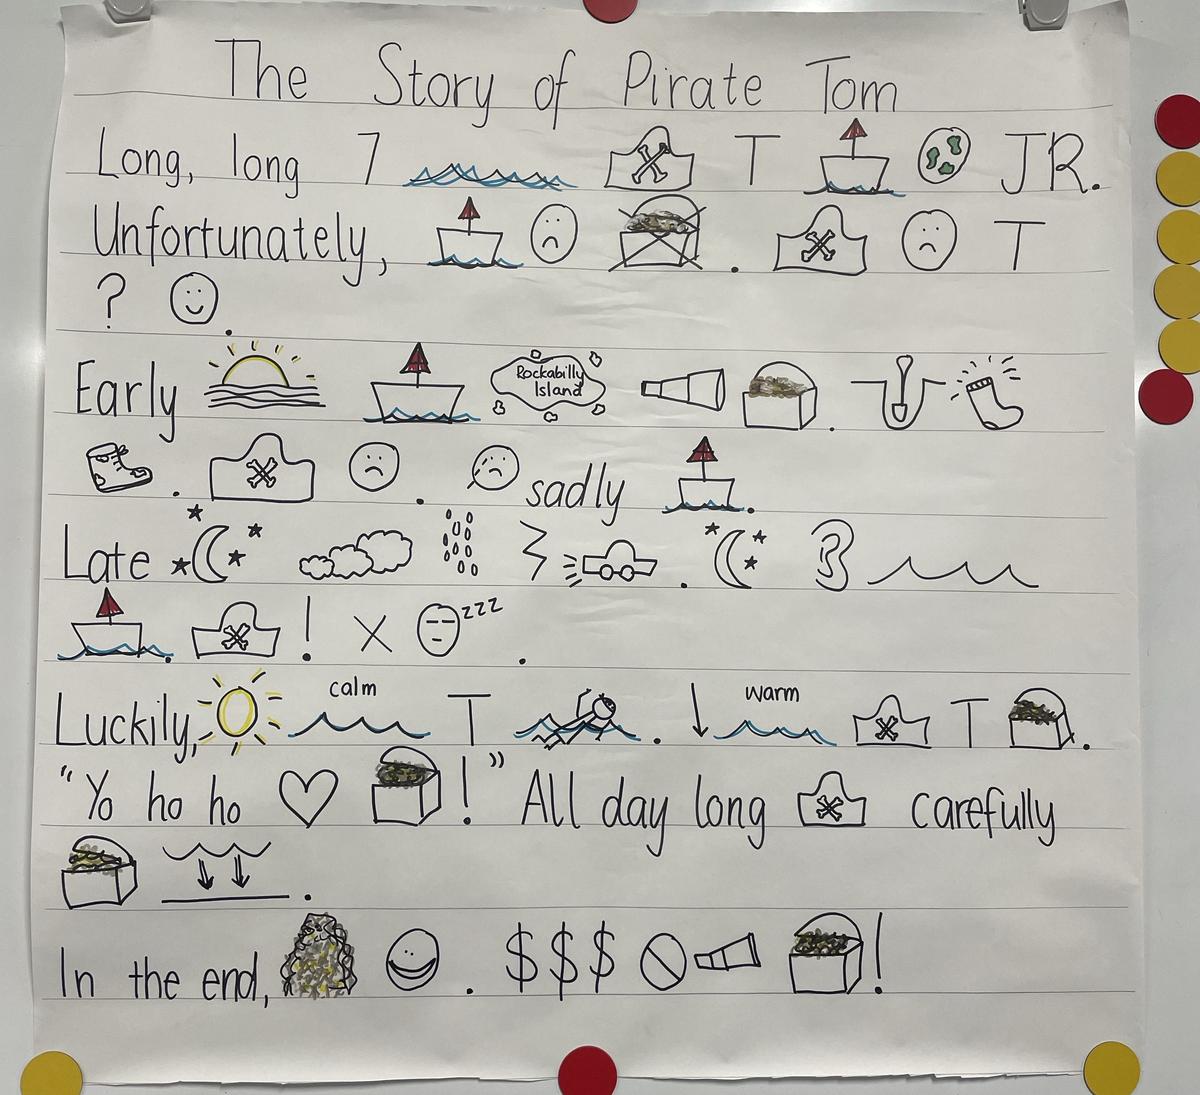 The Story of Pirate Tom
Long, long 7 T JR.
Unfortunately, . T
? .
Early Rockabilly Island .
. . sadly .
Late .
. ! X zzz .
Luckily, calm T . warm T .
"Yo ho ho ! " All day long carefully
.
In the end, . $$$ !